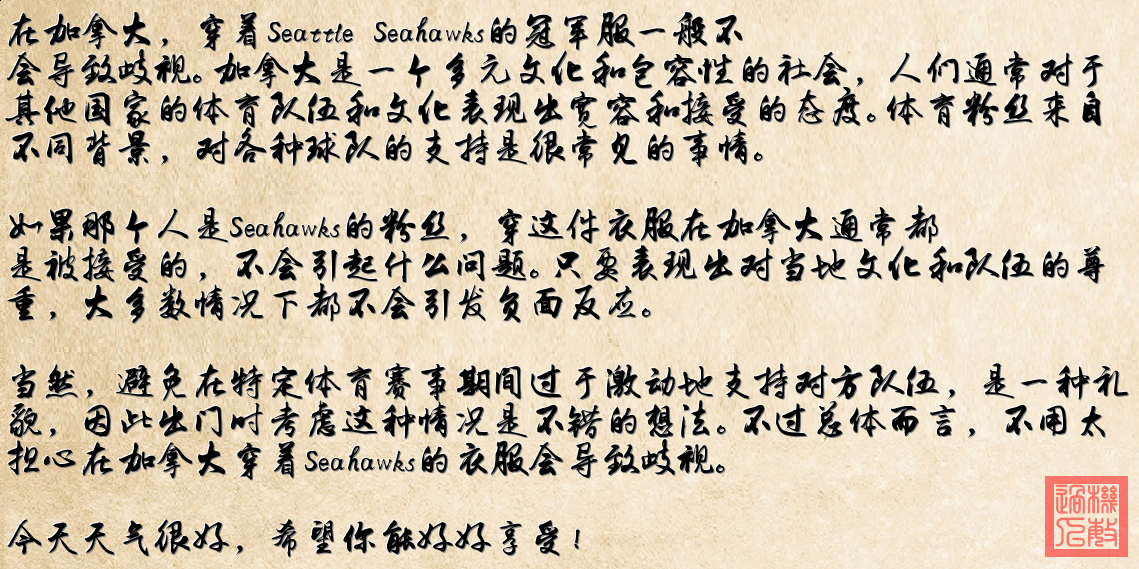 在加拿大，穿着Seattle Seahawks的冠军服一般不
会导致歧视。加拿大是一个多元文化和包容性的社会，人们通常对于
其他国家的体育队伍和文化表现出宽容和接受的态度。体育粉丝来自
不同背景，对各种球队的支持是很常见的事情。
如果那个人是Seahawks的粉丝，穿这件衣服在加拿大通常都
是被接受的，不会引起什么问题。只要表现出对当地文化和队伍的尊
重，大多数情况下都不会引发负面反应。
当然，避免在特定体育赛事期间过于激动地支持对方队伍，是一种礼
貌，因此出门时考虑这种情况是不错的想法。不过总体而言，不用太
担心在加拿大穿着Seahawks的衣服会导致歧视。
今天天气很好，希望你能好好享受！